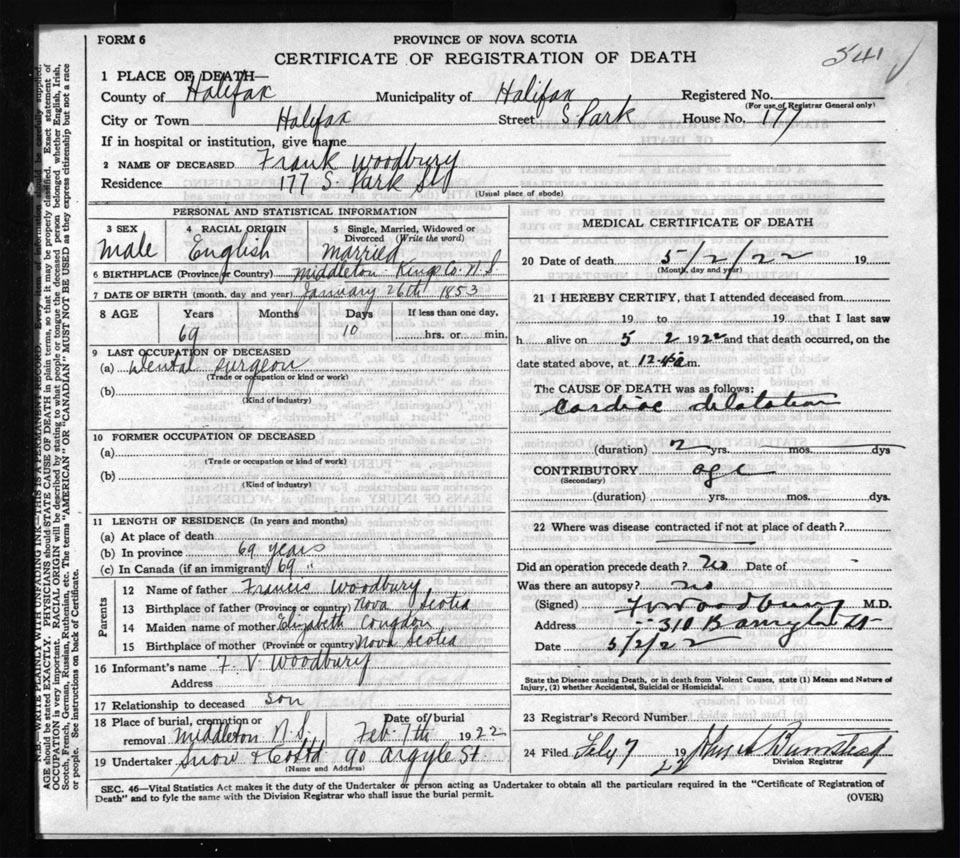 FORM 6
PROVINCE OF NOVA SCOTIA
CERTIFICATE OF REGISTRATION OF DEATH
541
1 PLACE OF DEATH—
County of Halifax Municipality of Halifax Registered No.
(For use of Registrar General only)
City or Town Halifax Street S. Park House No. 177
If in hospital or institution, give name
2 NAME OF DECEASED Frank Woodbury
Residence 177 S. Park St
(Usual place of abode)
PERSONAL AND STATISTICAL INFORMATION
3 SEX
male
4 RACIAL ORIGIN
English
5 Single, Married, Widowed or Divorced (Write the word)
Married
6 BIRTHPLACE (Province or Country) Middleton Kings Co. N.S.
7 DATE OF BIRTH (month, day and year) January 26th 1853
8 AGE Years Months Days If less than one day,
69 10 hrs. or min.
9 LAST OCCUPATION OF DECEASED
(a) Dental Surgeon
(Trade or occupation or kind or work)
(b)
(Kind of industry)
10 FORMER OCCUPATION OF DECEASED
(a)
(Trade or occupation or kind of work)
(b)
(Kind of industry)
11 LENGTH OF RESIDENCE (In years and months)
(a) At place of death
(b) In province 69 years
(c) In Canada (if an immigrant) 69 "
Parents
12 Name of father Francis Woodbury
13 Birthplace of father (Province or country) Nova Scotia
14 Maiden name of mother Elizabeth Congdon
15 Birthplace of mother (Province or country) Nova Scotia
16 Informant's name F. V. Woodbury
Address
17 Relationship to deceased son
18 Place of burial, cremation or removal Middleton N.S. Date of burial Feb 7th 1922
19 Undertaker Snow & Co Ltd 90 Argyle St.
(Name and Address)
MEDICAL CERTIFICATE OF DEATH
20 Date of death 5/2/22 19
(Month, day and year)
21 I HEREBY CERTIFY, that I attended deceased from
19 to 19 that I last saw
h alive on 5 2 1922 and that death occurred, on the
date stated above, at 12.45 a m.
The CAUSE OF DEATH was as follows:
Cardiac dilatation
(duration) 2 yrs. mos. dys
CONTRIBUTORY age
(Secondary)
(duration) yrs. mos. dys.
22 Where was disease contracted if not at place of death?
Did an operation precede death? No Date of -
Was there an autopsy? no
(Signed) F V Woodbury M.D.
Address 310 Barrington St
Date 5/2/22
State the Disease causing Death, or in death from Violent Causes, state (1) Means and Nature of Injury, (2) whether Accidental, Suicidal or Homicidal.
23 Registrar's Record Number
24 Filed Feby 7 1922 John A Bumstead
Division Registrar
SEC. 46—Vital Statistics Act makes it the duty of the Undertaker or person acting as Undertaker to obtain all the particulars required in the "Certificate of Registration of
Death" and to fyle the same with the Division Registrar who shall issue the burial permit.
(OVER)
N.B.—WRITE PLAINLY WITH UNFADING INK—THIS IS A PERMANENT RECORD. Every item of information should be carefully supplied.
AGE should be stated EXACTLY. PHYSICIANS should STATE CAUSE OF DEATH in plain terms, so that it may be properly classified. Exact statement of
OCCUPATION is very important. RACIAL ORIGIN will be described by stating to what people or tongue the deceased person belonged whether English, Irish,
Scotch, French, German, Russian, Ruthenian, etc. The terms "AMERICAN" OR "CANADIAN" MUST NOT BE USED as they express citizenship but not a race
or people. See instructions on back of Certificate.